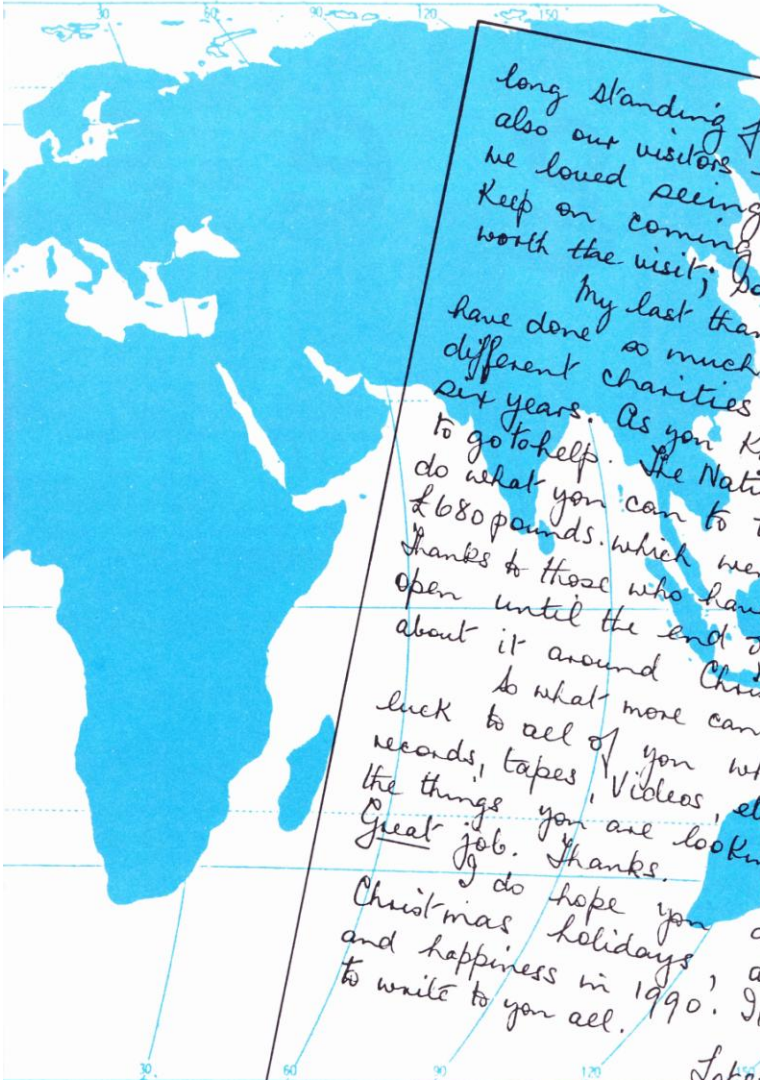 30 60 90 120 150
long standing
also our visitors -
we loved seeing
Keep on coming
worth the visit;
My last
have done so much
different charities
six years. As you
to go to help. The
do what you can to
£680 pounds. which
Thanks to those who
open until the end
about it around
So what more can
luck to all of you
records, tapes, Videos,
the things you are
Great job. Thanks.
I do hope you
Christmas holidays,
and happiness in 1990.
to write to you all.
30 60 90 120 150